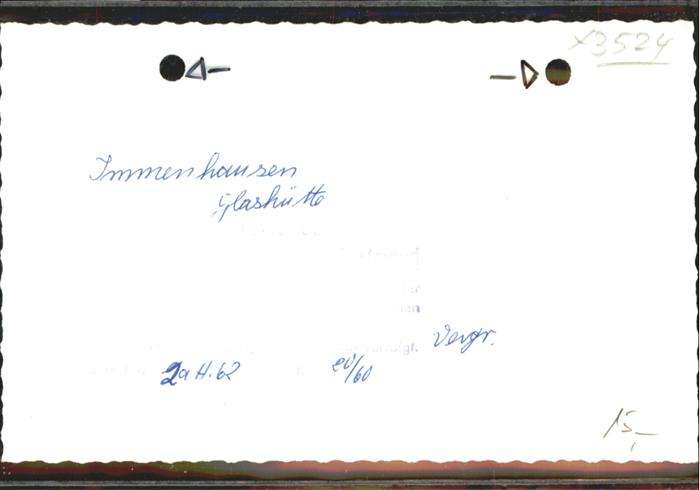 x3524
Immenhausen
Glashütte
Vergr.
2a H. 62
20/60
15,-